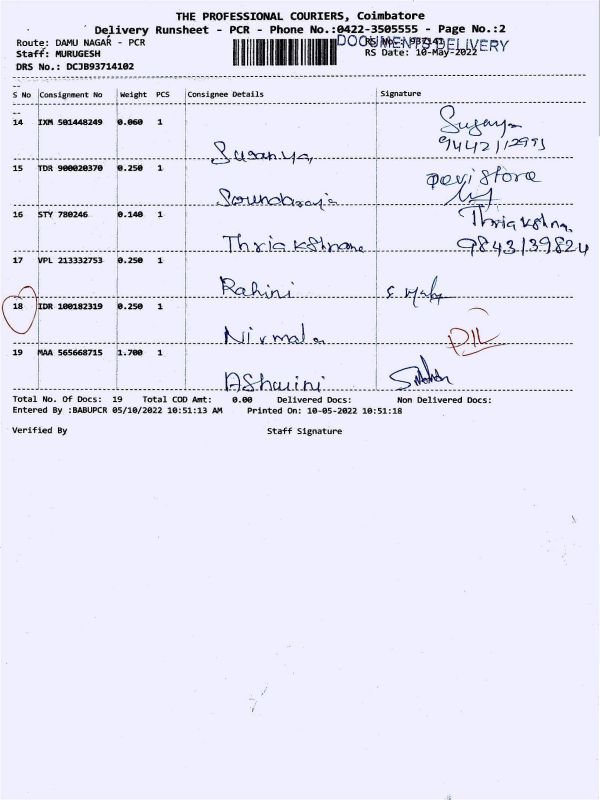 THE PROFESSIONAL COURIERS, Coimbatore
Delivery Runsheet - PCR - Phone No.:0422-3505555 - Page No.:2
Route: DAMU NAGAR - PCR
DOCUMENTS DELIVERY
Staff: MURUGESH
RS Date: 10-May-2022
DRS No.: DCJB93714102
S No Consignment No Weight PCS Consignee Details Signature
14 IXM 501448249 0.060 1
Susanya
15 TDR 900020370 0.250 1
Soundaraja
16 STY 780246 0.140 1
17 VPL 213332753 0.250 1
Rahini
18 IDR 100182319 0.250 1
Nirmala
19 MAA 565668715 1.700 1
AShwini
Total No. Of Docs: 19 Total COD Amt: 0.00 Delivered Docs: Non Delivered Docs:
Entered By :BABUPCR 05/10/2022 10:51:13 AM Printed On: 10-05-2022 10:51:18
Verified By Staff Signature